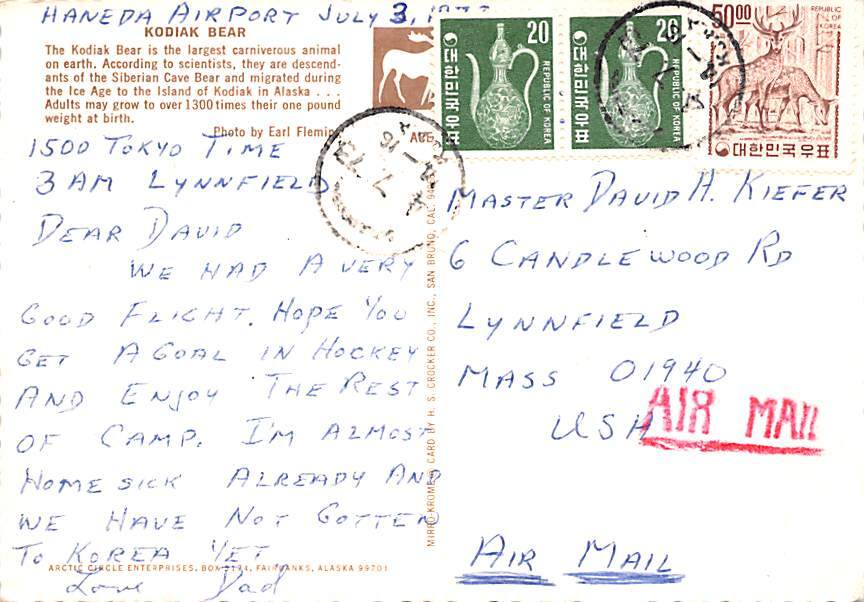 HANEDA AIRPORT JULY 3,
KODIAK BEAR
The Kodiak Bear is the largest carniverous animal
on earth. According to scientists, they are descend-
ants of the Siberian Cave Bear and migrated during
the Ice Age to the Island of Kodiak in Alaska . . .
Adults may grow to over 1300 times their one pound
weight at birth.
Photo by Earl Fleming
1500 TOKYO TIME
3 AM LYNNFIELD
DEAR DAVID
WE HAD A VERY
GOOD FLIGHT. HOPE YOU
GET A GOAL IN HOCKEY
AND ENJOY THE REST
OF CAMP. I'M ALMOST
HOME SICK ALREADY AND
WE HAVE NOT GOTTEN
TO KOREA YET
ARCTIC CIRCLE ENTERPRISES, BOX 2194, FAIRBANKS, ALASKA 99701
Love Dad
MIRRO-KROME® CARD BY H. S. CROCKER CO., INC., SAN BRUNO, CAL. 94
20
대한민국우표
REPUBLIC OF KOREA
20
대한민국우표
REPUBLIC OF KOREA
50 00
REPUBLIC
OF KOREA
대한민국우표
MASTER DAVID H. KIEFER
6 CANDLEWOOD RD
LYNNFIELD
MASS 01940
USA
AIR MAIL
AIR MAIL